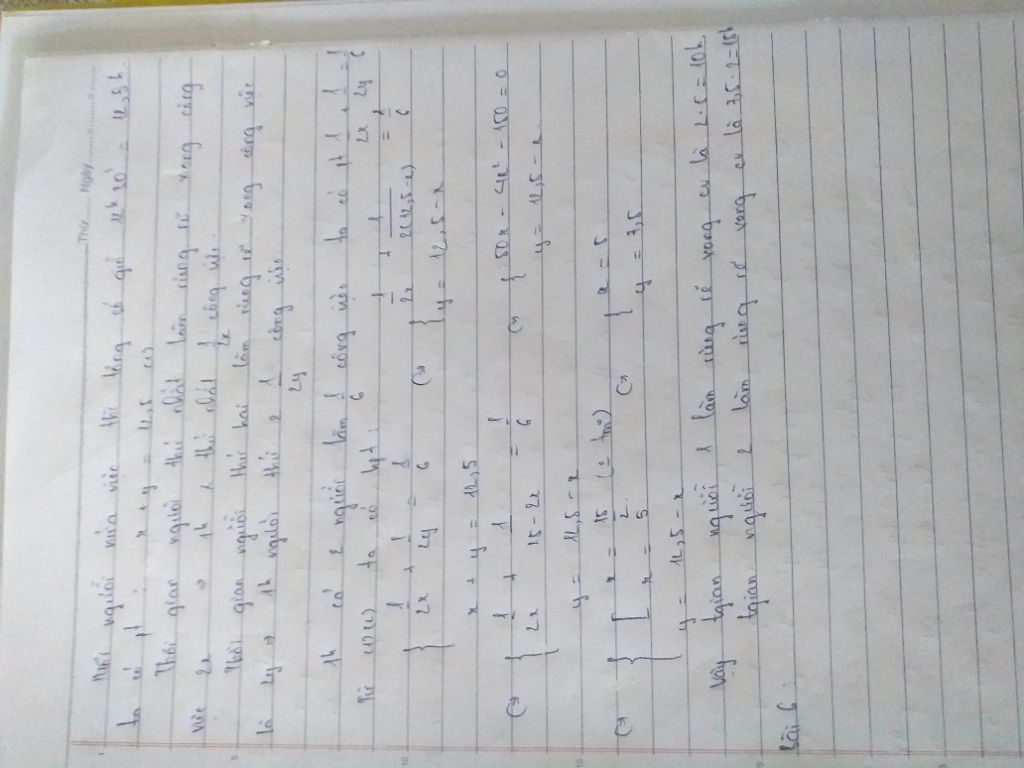 Thứ ...... Ngày ......
Mỗi người nửa việc thì tổng số giờ 12h30' = 12,5h.
ta có pt : x + y = 12,5 (1)
Thời gian người thứ nhất làm riêng rẽ xong công
việc 2x => 1h 1 thứ nhất 1/2x công việc.
Thời gian người thứ hai làm riêng rẽ xong công việc
là 2y => 1h người thứ 2 1/2y công việc
1h cả 2 người làm 1/6 công việc ta có pt 1/2x + 1/2y = 1/6
Từ (1)(2) ta có hpt :
{ 1/2x + 1/2y = 1/6 (=> { 1/2x + 1/2(12,5-x) = 1/6
x + y = 12,5 y = 12,5 - x
(=> { 1/2x + 1/25-2x = 1/6 (=> { 50x - 4x² - 150 = 0
y = 12,5 - x y = 12,5 - x
(=> { [ x = 15/2 (= tm) (=> { x = 5
x = 5 y = 7,5
y = 12,5 - x
Vậy tgian người 1 làm riêng rẽ xong cv là 2.5 = 10h.
tgian người 2 làm riêng rẽ xong cv là 7,5.2 = 15h
Bài 6 :